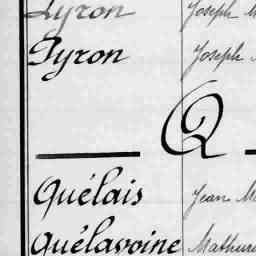 Pyron Joseph M
Pyron Joseph
Q
Quélais Jean M
Quélavoine Mathuri